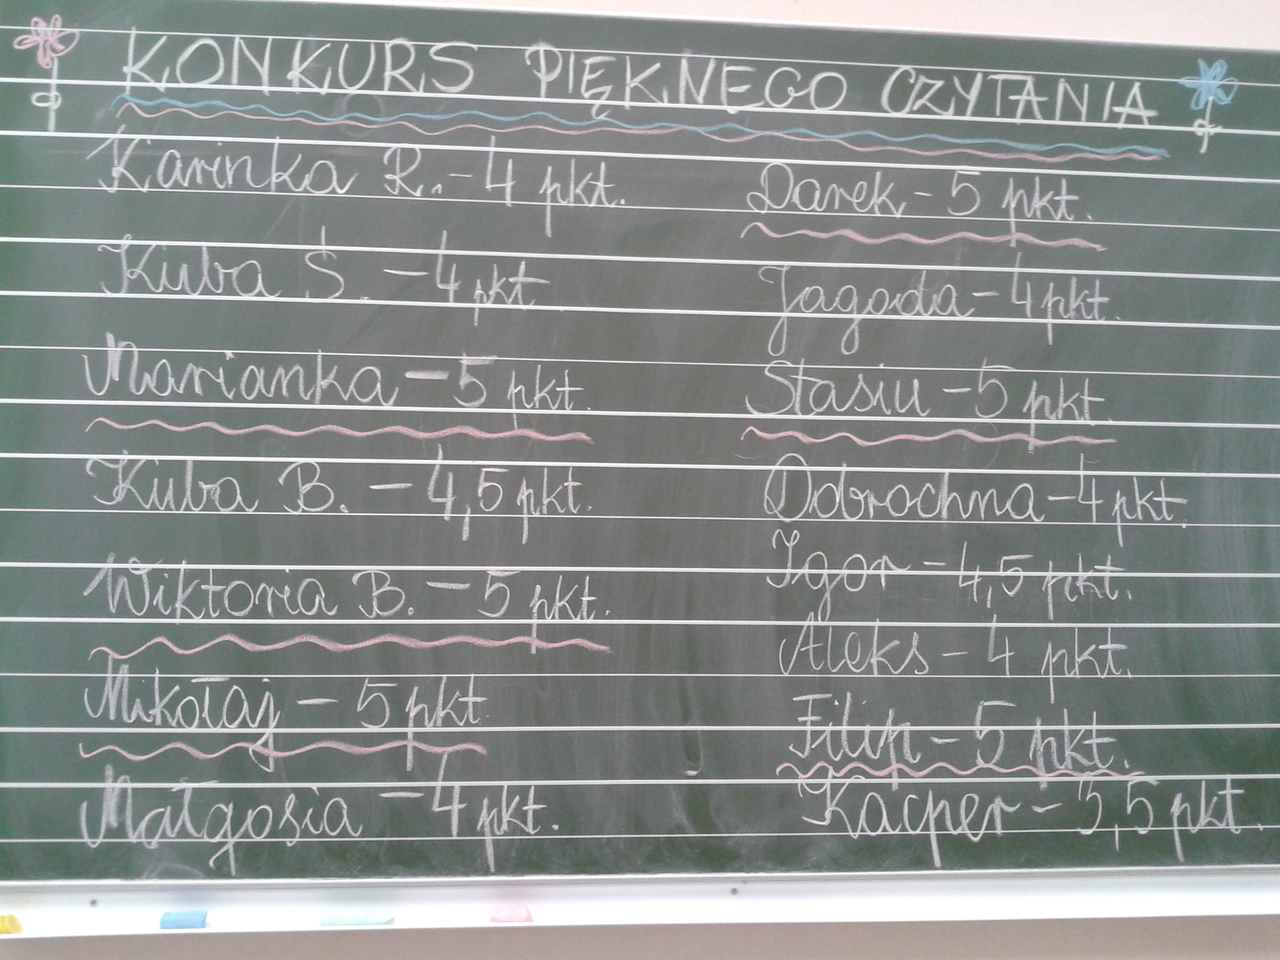 KONKURS PIĘKNEGO CZYTANIA
Karinka R. - 4 pkt.
Kuba S. - 4 pkt
Marianka - 5 pkt.
Kuba B. - 4,5 pkt.
Wiktoria B. - 5 pkt.
Mikołaj - 5 pkt.
Małgosia - 4 pkt.
Darek - 5 pkt.
Jagoda - 4 pkt.
Stasiu - 5 pkt.
Dobrochna - 4 pkt.
Igor - 4,5 pkt.
Aleks - 4 pkt.
Filip - 5 pkt.
Kacper - 3,5 pkt.